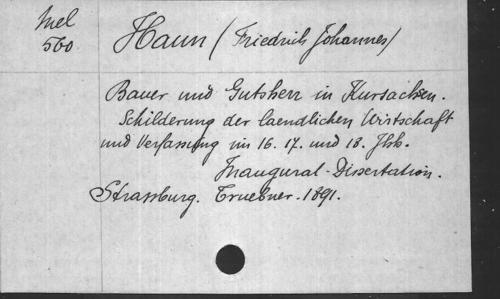 Mel
560
Haun (Friedrich Johannes)
Bauer und Gutsherr in Kursachsen.
Schilderung der laendlichen Wirtschaft
und Verfassung im 16. 17. und 18. Jhh.
Inaugural-Dissertation.
Strassburg. Truebner. 1891.